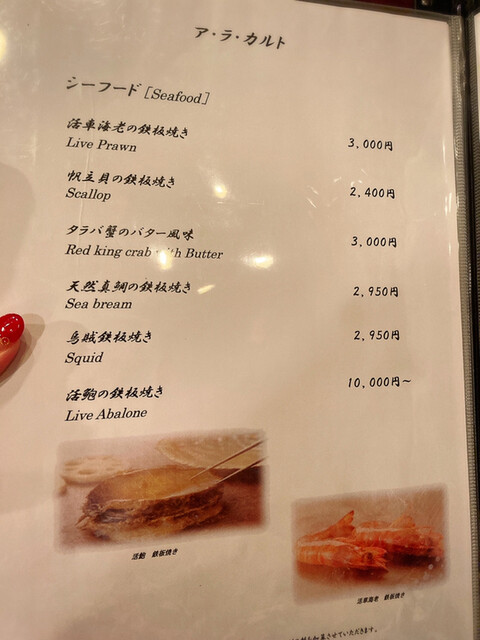 ア・ラ・カルト
シーフード [Seafood]
活車海老の鉄板焼き
Live Prawn 3,000円
帆立貝の鉄板焼き
Scallop 2,400円
タラバ蟹のバター風味
Red king crab with Butter 3,000円
天然真鯛の鉄板焼き
Sea bream 2,950円
烏賊鉄板焼き
Squid 2,950円
活鮑の鉄板焼き
Live Abalone 10,000円~
活鮑 鉄板焼き
活車海老 鉄板焼き
させていただきます。